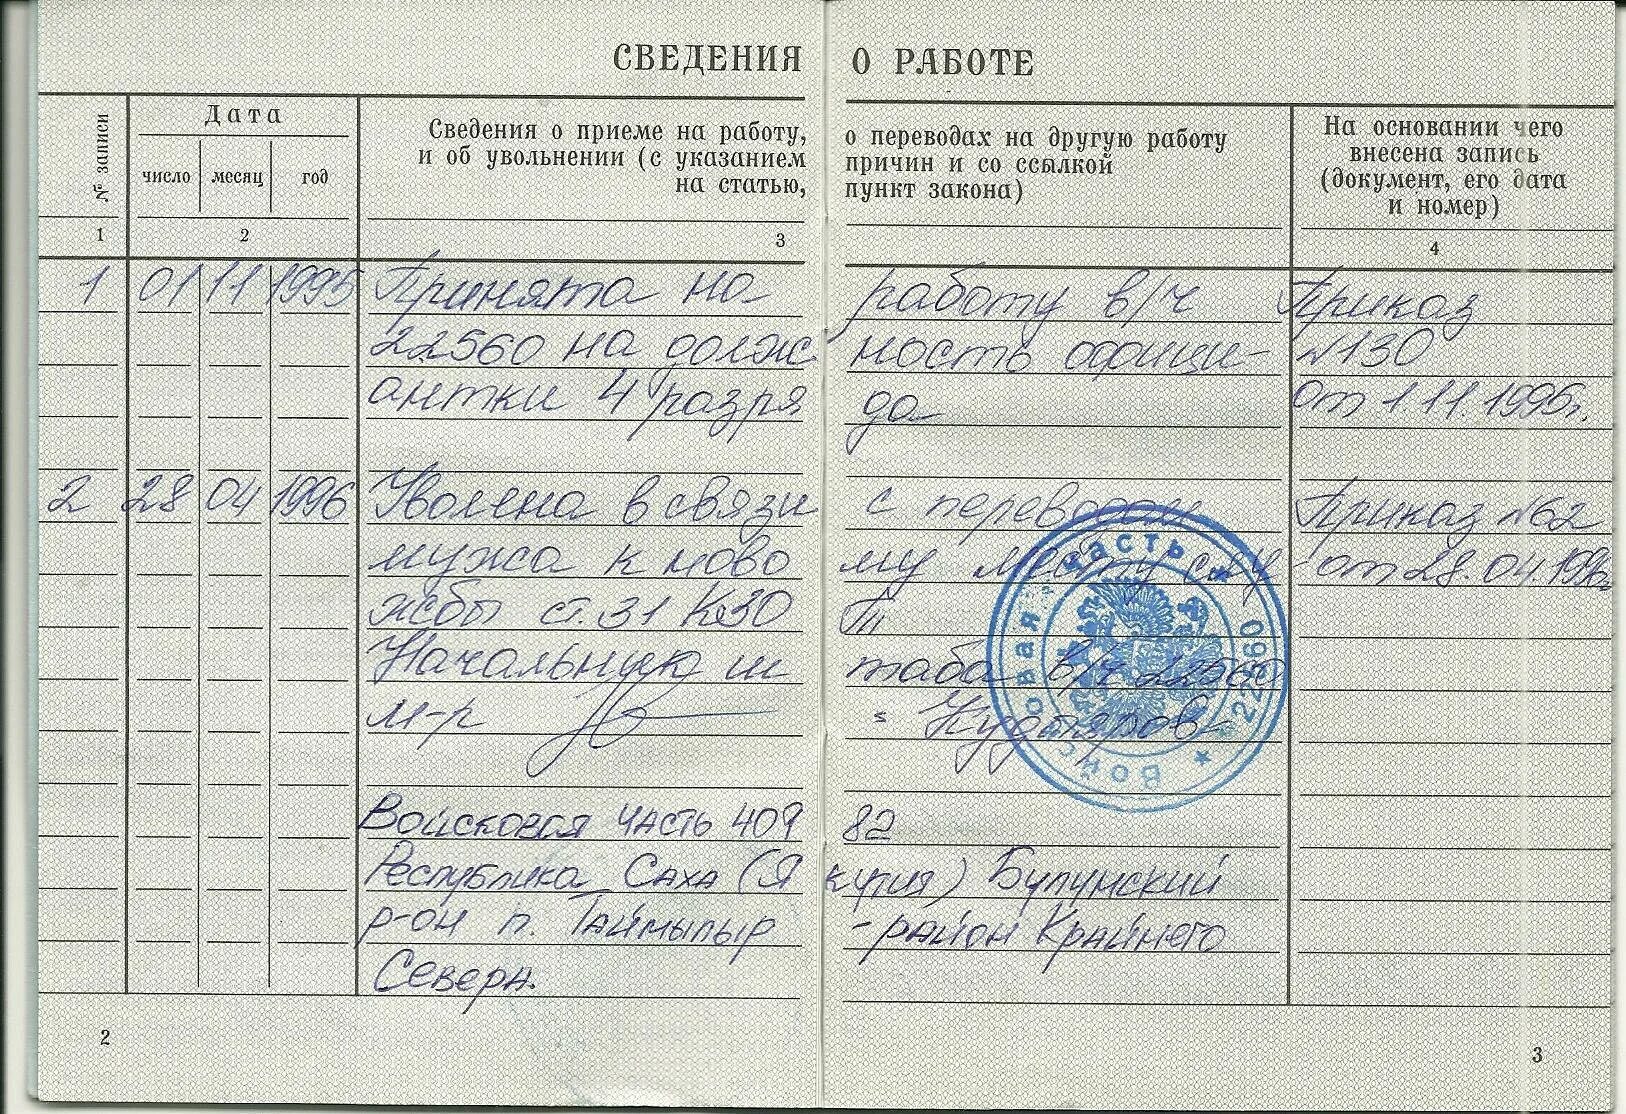 СВЕДЕНИЯ О РАБОТЕ
№ записи
Дата
число месяц год
Сведения о приеме на работу, о переводах на другую работу
и об увольнении (с указанием причин и со ссылкой
на статью, пункт закона)
На основании чего
внесена запись
(документ, его дата
и номер)
1 2 3 4
1 01 11 1995 Принята на работу в/ч Приказ
22560 на должность официнь- №130
антки 4 разряда от 1.11.1995г.
2 28 04 1996 Уволена в связи с переводом Приказ №62
мужа к новому месту слу от 28.04.1996г.
жбы ст. 31 КЗО Т
Начальник штаба в/ч 22560
м-р Кудаяров
Войсковая часть * 22560 *
Войсковая часть 40982
Республика Саха (Якутия) Булунский
р-он п. Таймылыр - район Крайнего
Севера.
2
3